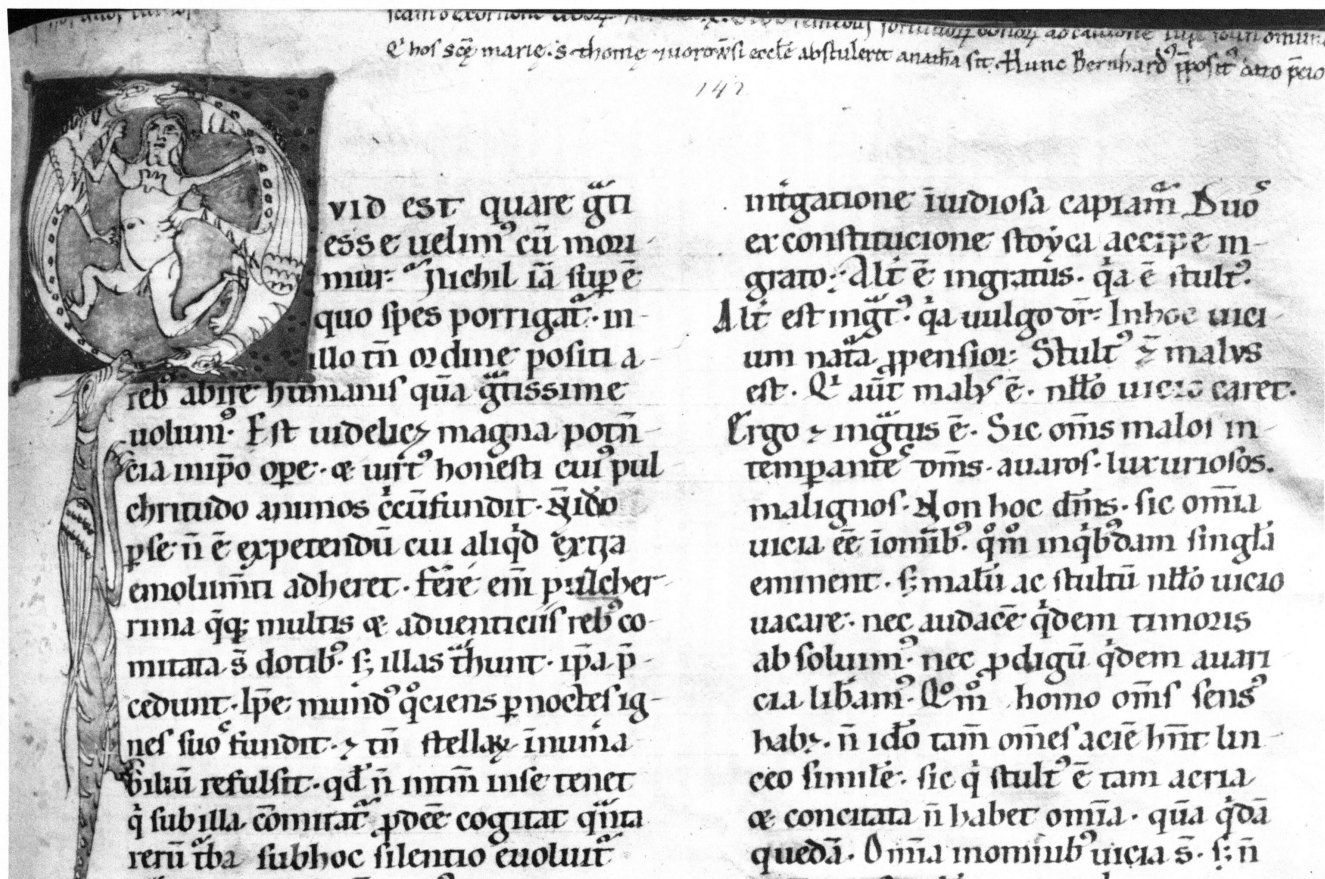 Q̇ hos scę marie · s · thomę abstulerit anathа sit · Hunc Bernhard᾿
142
VID EST quare gͣti
esse uelim᾿ cū mori-
mur· Nichil iā sup ē
quo spes porrigatᷓ · in-
illo tn̄ ordine positi a-
reb᾿ abire humanis quā gͣtissime
uolum᾿ · Est uidelicꝫ magna potn̄-
cia inip̄o ope · & uirt᾿ honesti cui᾿ pul
chritudo animos c̓cūfundit · N̄ido
ꝑse n̄ ē expetendū cui aliq̓d extra
emolumn̄ti adheret · Fere em̄ pulcher-
rima q̄qꝫ multis & aduenticiis reb᾿ co-
mitata s̄ dotib᾿ · sꝫ illas tͣhunt · ip̄a p̄-
cedunt · Ip̄e mund᾿ q°ciens ꝑnoctes ig-
nes suo᾿ fundit · ⁊ tn̄ stellaꝝ īnum̓a
biliū refulsit · qd̄ n̄ intm̄ inse tenet
q̓ subilla cōmitatᷓ ꝓdcē cogitat qͣnta
rerū tͣba subhoc silentio euoluitᷓ
mitigatione īuidiosa capiamᷓ Duo᾿
ex constitucione stoyci accipe in-
grato · Alt᾿ ē ingratus · q̓a ē stult᾿·
Alt᾿ est ingͣt᾿ · q̓a uulgo dr̄ · Inhoc uici
um nat̄a ꝓpensior · Stult᾿ ⁊ malus
est · Q̓ aūt mal᾿ ē · nll̄o uicio caret·
Ergo ⁊ ingͣtus ē · Sic om̄s malos in
temꝑante᾿ dm̄s · auaros · luxuriosos·
malignos · Non hoc dm̄s · sic om̄ia
uicia ēe īomīb᾿ · qm̄ inq̓b᾿dam singl̄a
eminent · sꝫ malū ac stultū nll̄o uicio
uacare · nec audacē q̓dem timoris
absoluim᾿ · nec ꝓdigū q̓dem auari
cia libam᾿ · Q°m° homo om̄s sens᾿
habꝫ · n̄ ido tam om̄es aciē hn̄t lin-
ceo similē · sic q̓ stult᾿ ē tam acria
& concitata n̄ habet om̄ia · quā q̓dā
quedā · Om̄ia inomīnib᾿ uicia s̄ · sꝫ n̄